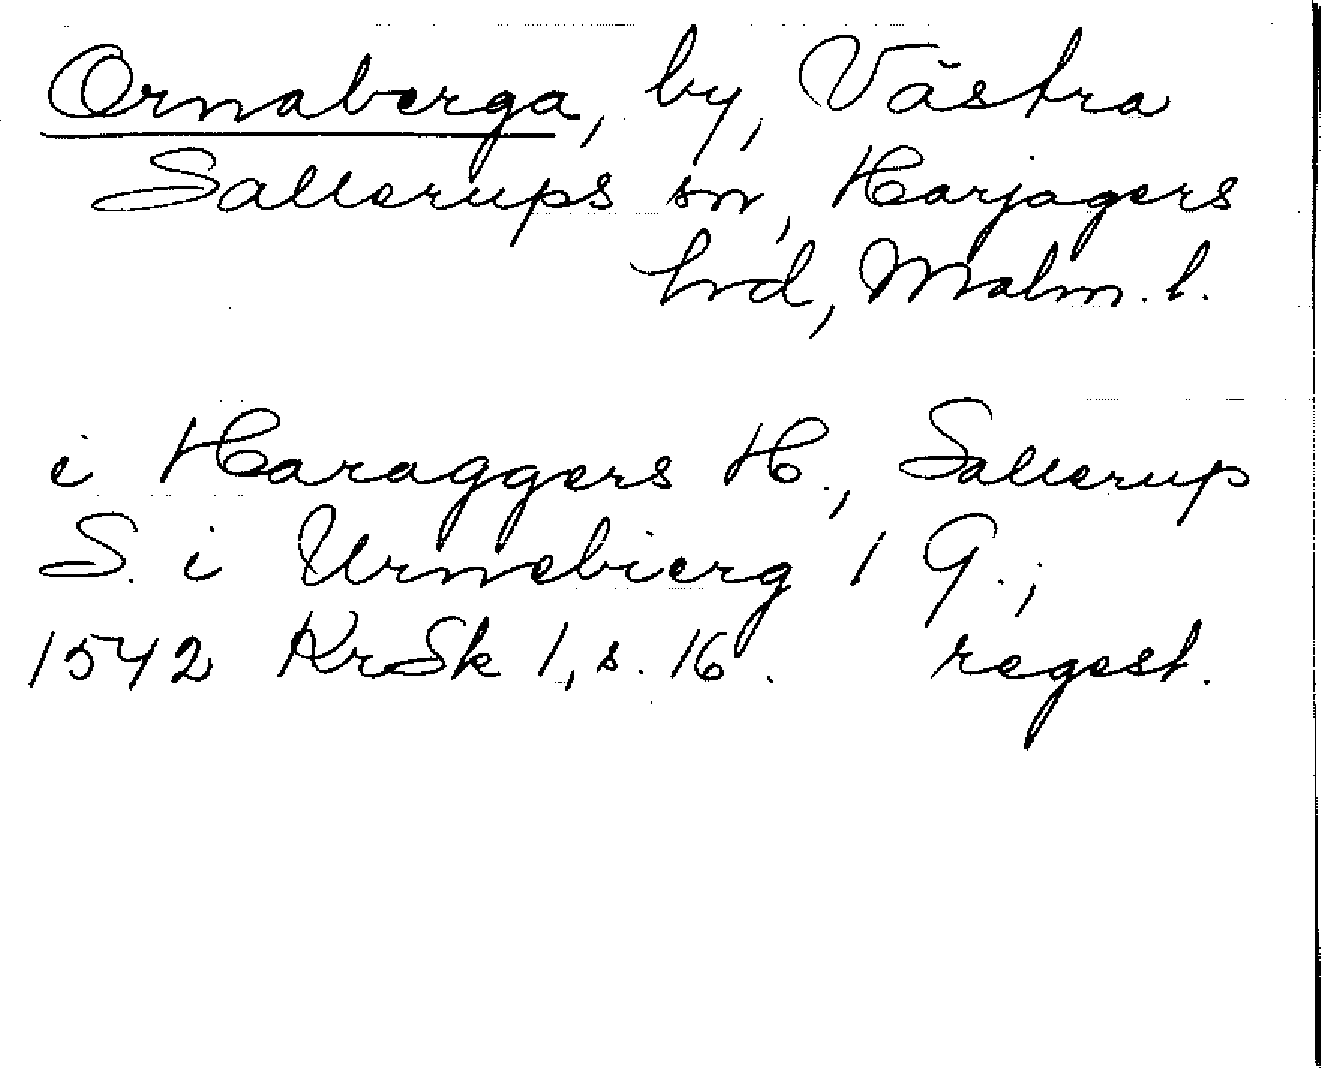 Ornaberga, by, Västra
Sallerups sn, Harjagers
hrd, Malm. l.
i Haraggers H., Sallerup
S. i Urnebierg 1 G.;
1542 KrSk 1, s. 16. regest.